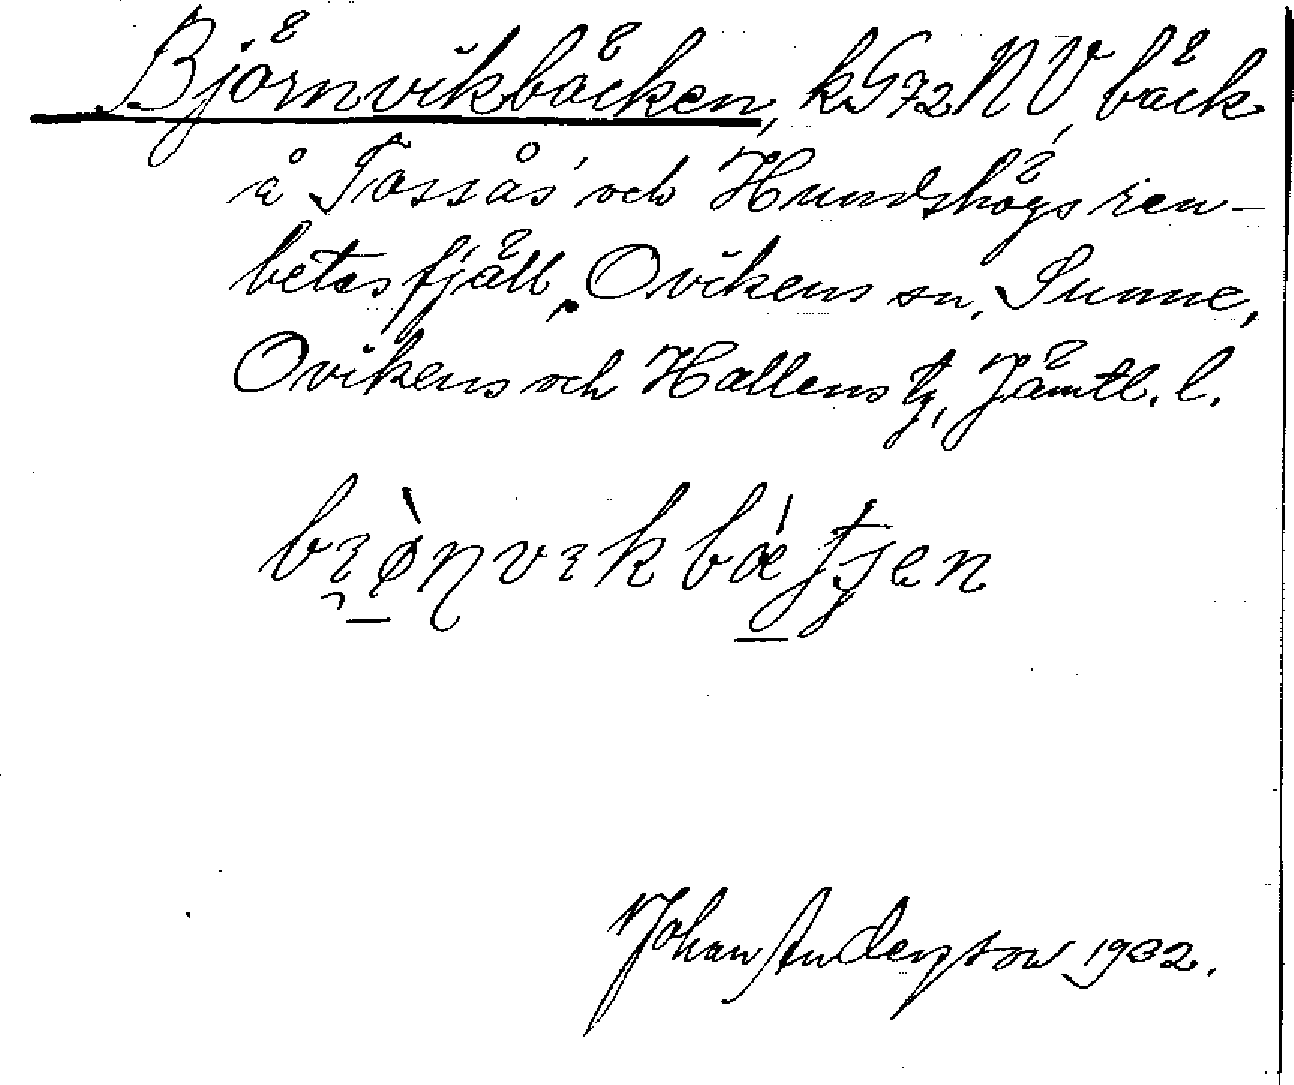 Björnvikbäcken, kG72NV, bäck
å Tossås' och Hundshögs ren-
betesfjäll, Ovikens sn, Sunne,
Ovikens och Hallens tg, Jämtl. l.
Johan Anderson 1932.